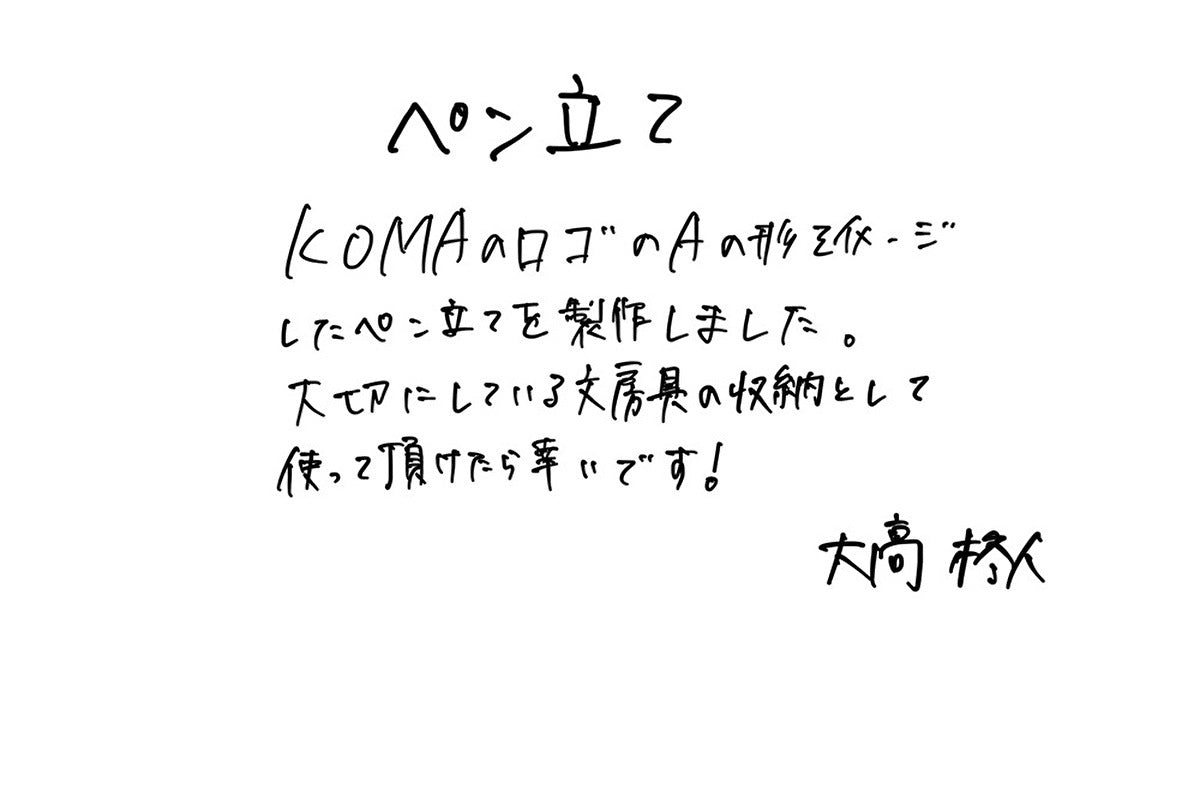 ペン立て
KOMAのロゴのAの形をイメージ
したペン立てを製作しました。
大切にしている文房具の収納として
使って頂けたら幸いです!
大高 柊人